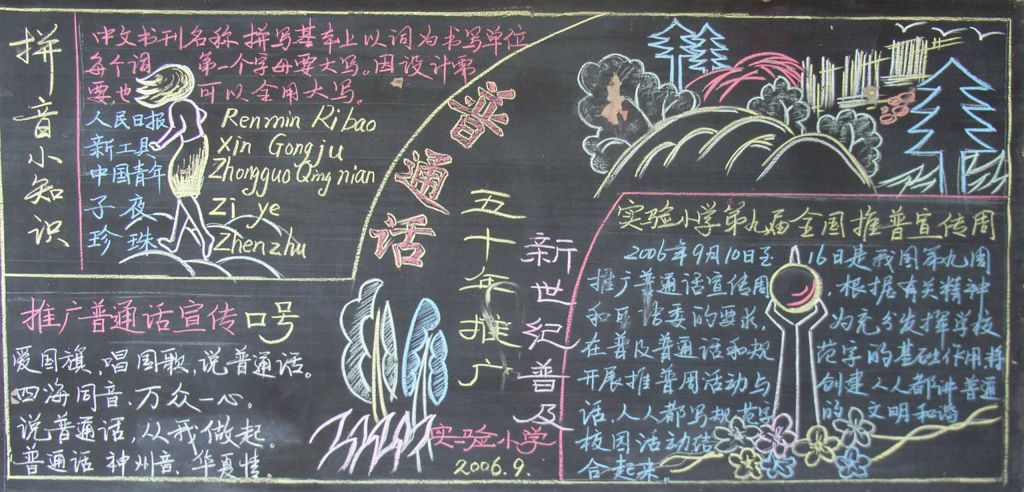 拼音小知识
中文书刊名称拼写基本上以词为书写单位
每个词 第一个字母要大写。因设计需
要,也 可以全用大写。
人民日报 Renmin Ribao
新工具 Xin Gongju
中国青年 Zhongguo Qingnian
子夜 Zi ye
珍珠 Zhenzhu
推广普通话宣传口号
爱国旗,唱国歌,说普通话。
四海同音,万众一心。
说普通话,从我做起。
普通话 神州音,华夏情。
普通话
五十年推广
新世纪普及
实验小学
2006.9.
实验小学第九届全国推普宣传周
2006年9月10日至 16日是我国第九周
推广普通话宣传周 ,根据有关精神
和 语委的要求, 为充分发挥学校
在普及普通话和规 范字的基础作用,将
开展推普周活动与 创建人人都讲普通
话,人人都写规 的 文明和谐
校园活动
合起来。